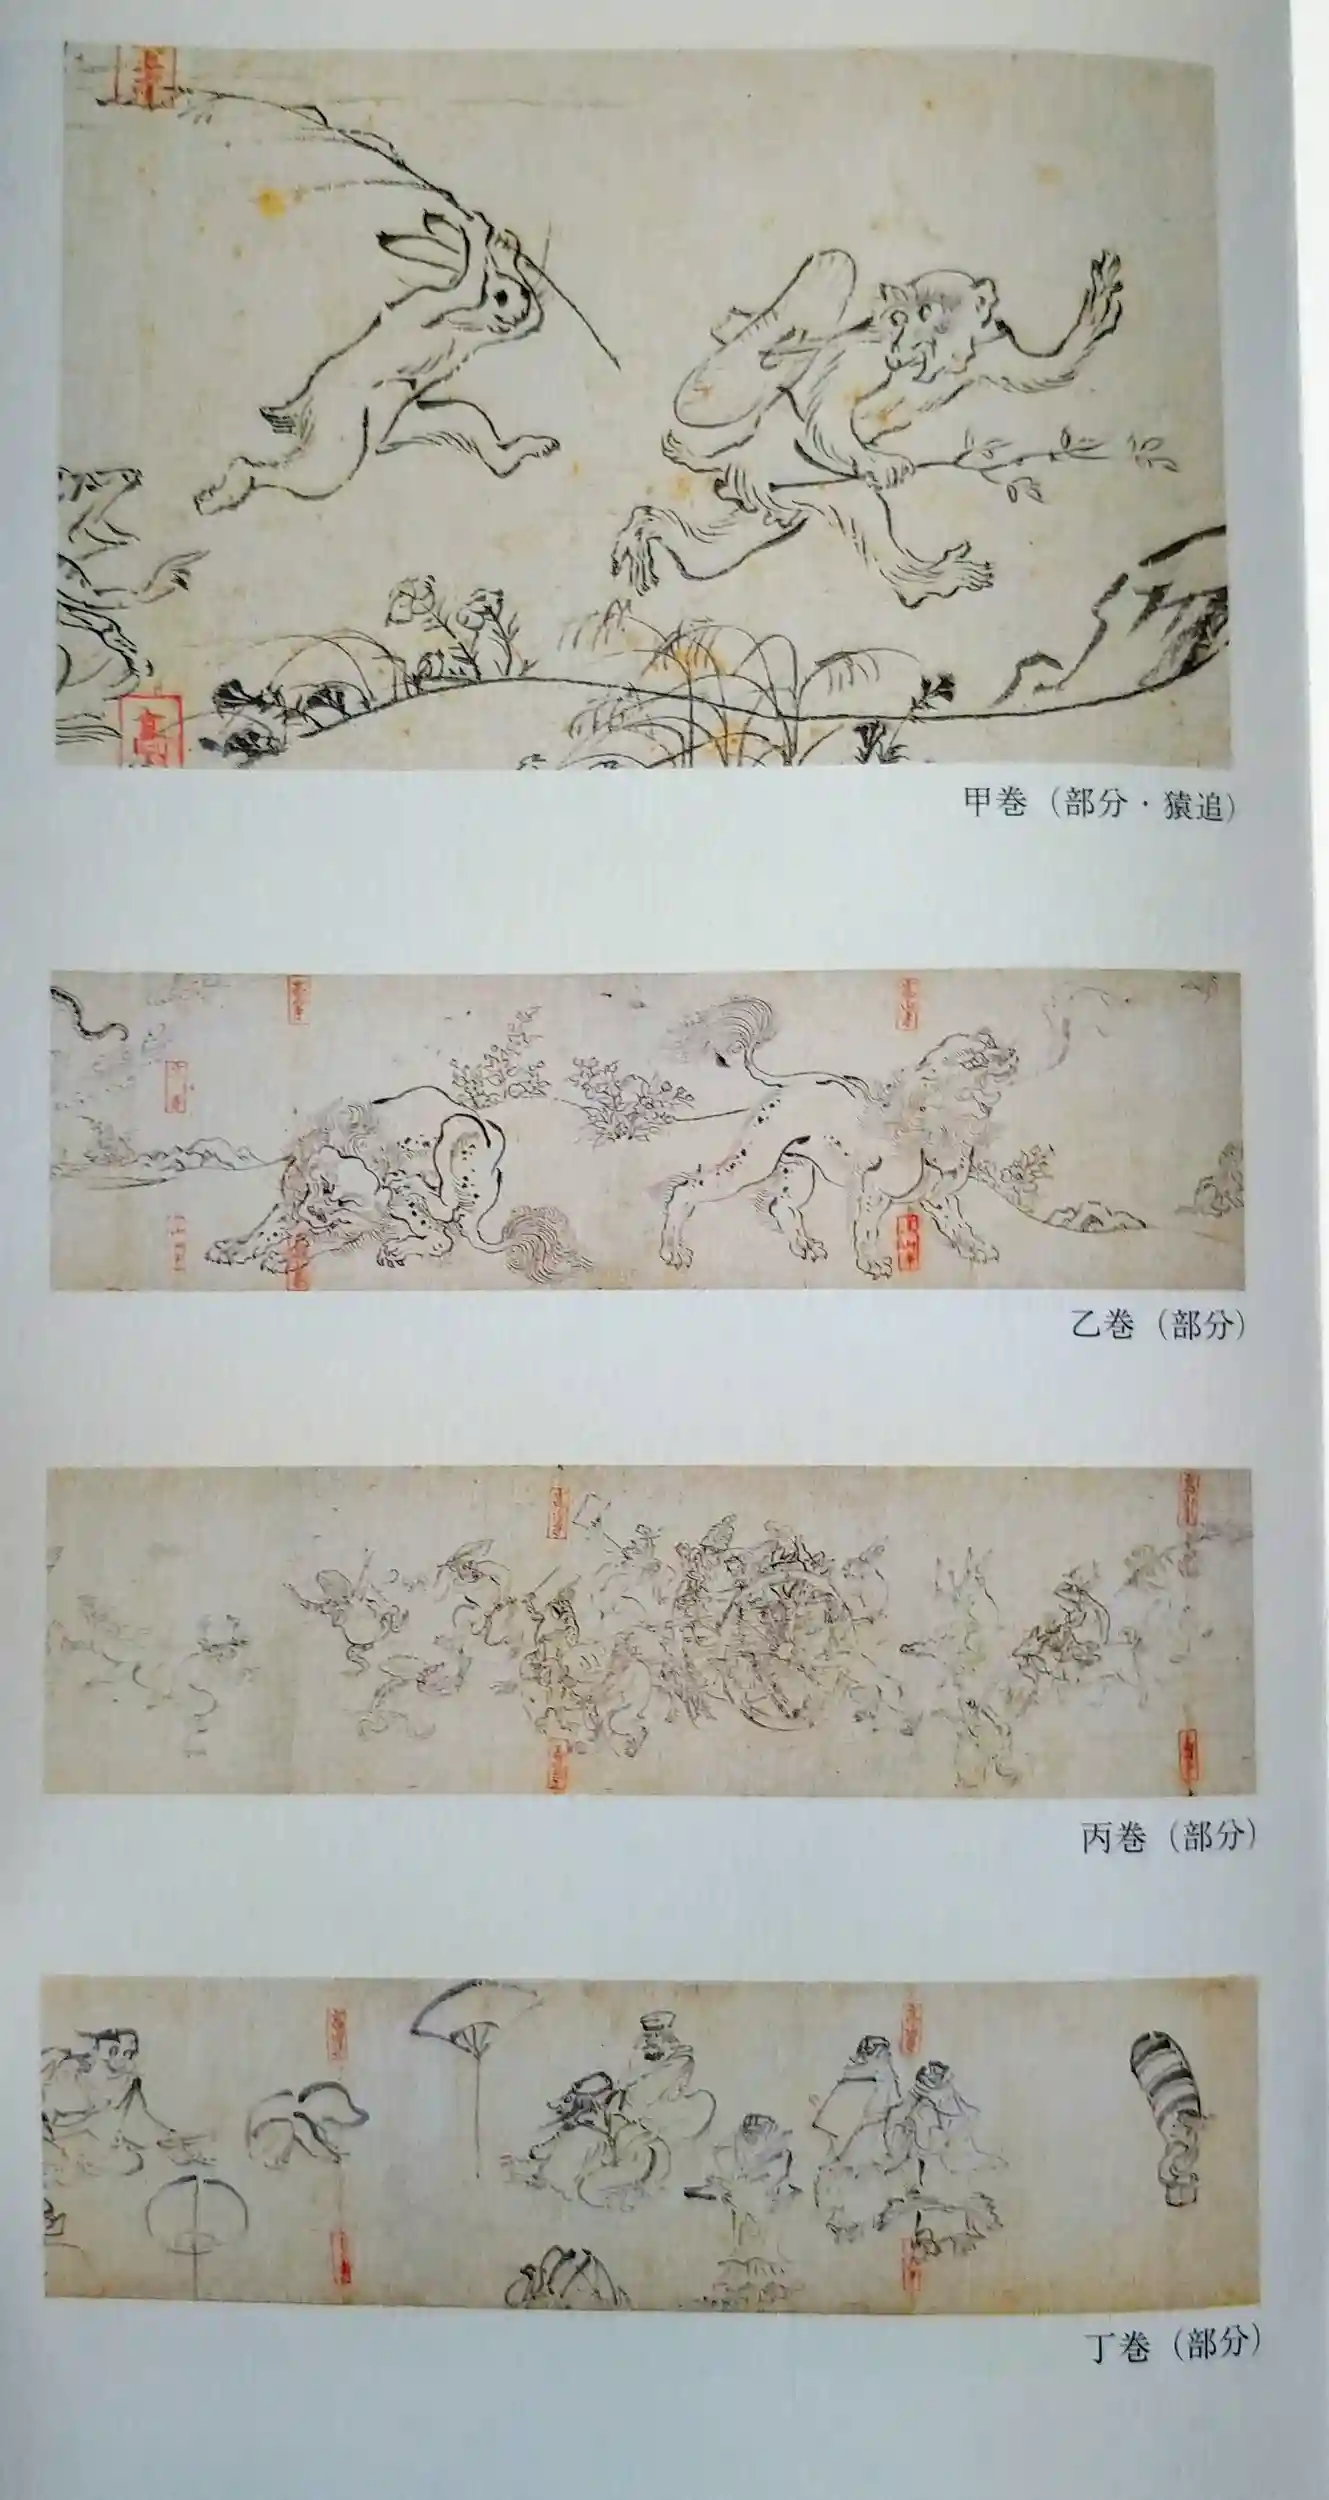 甲巻（部分・猿追）
乙巻（部分）
丙巻（部分）
丁巻（部分）